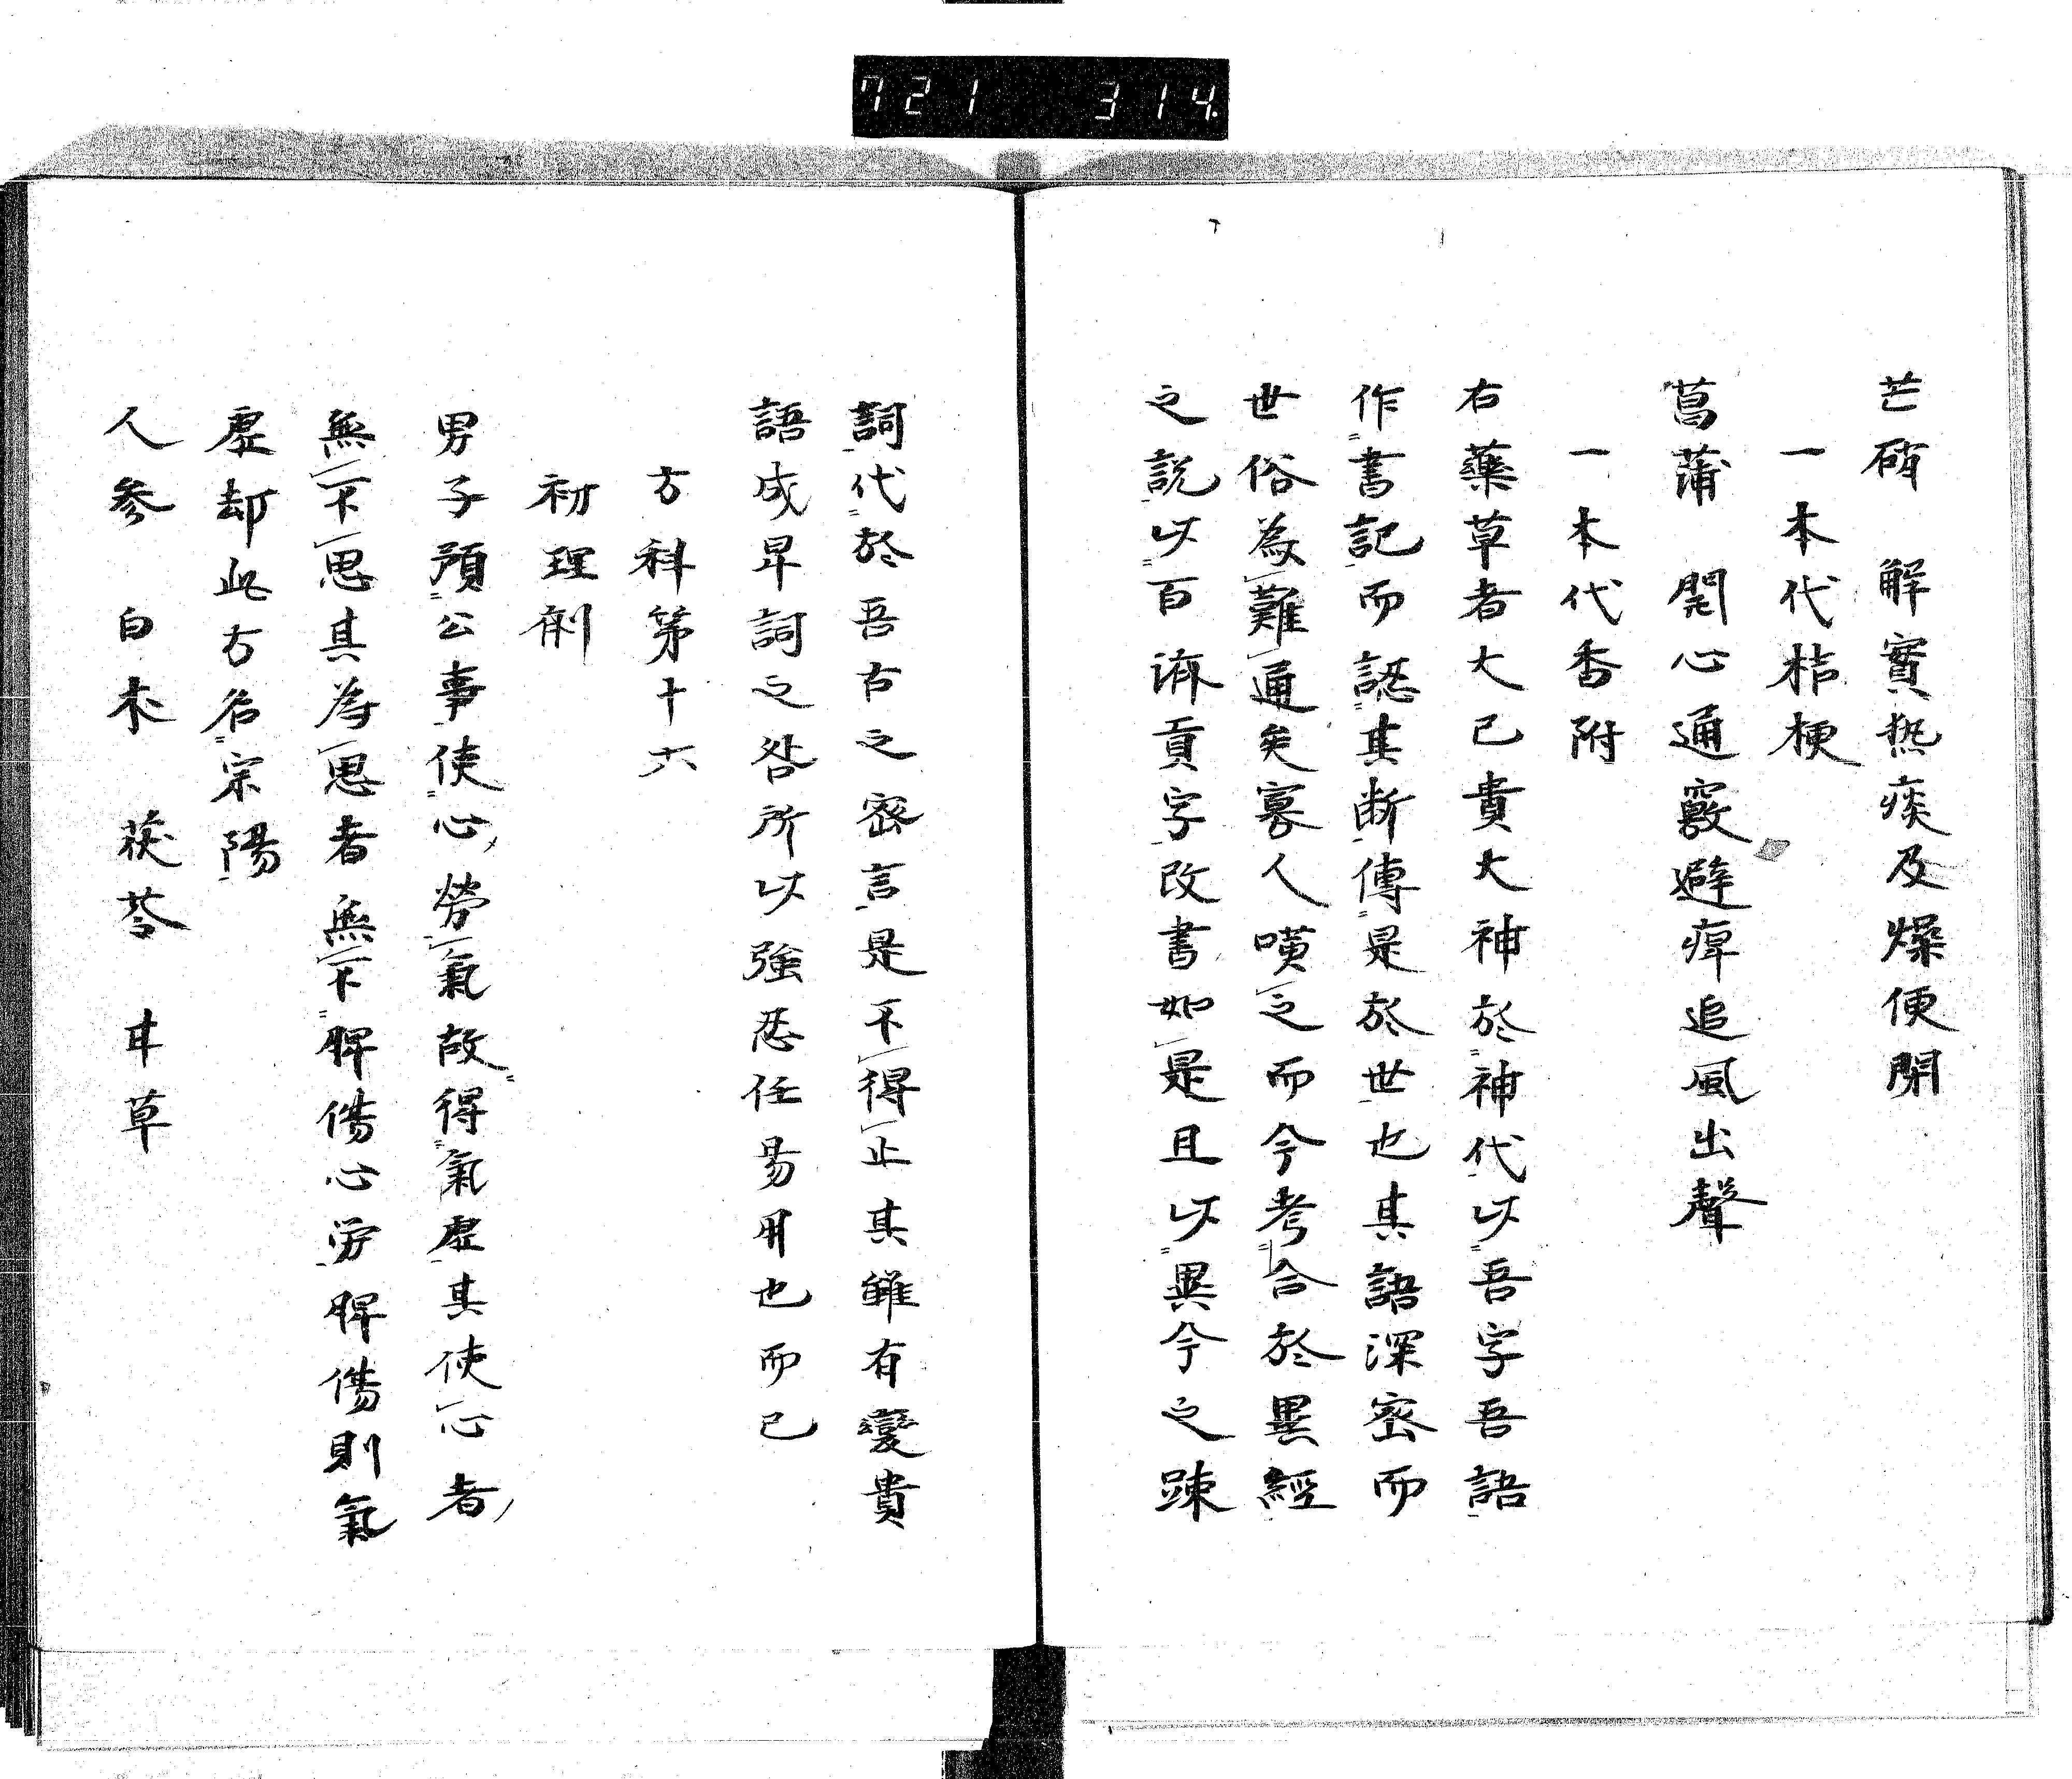 721 314
芒硝 解實热痰及燥便閉
一本代桔梗
菖蒲 開心通竅避痺追風出聲
一本代香附
右藥草者大已貴大神於神代以吾字吾語
作書記而認其断傳是於世也其語深密而
世俗為難通矣寡人嘆之而今考合於異經
之説以百済貢字改書如是且以異今之踈
詞代於吾古之密言是不得止其雖有變貴
語成早詞之咎所以強忍任易用也而已
方科第十六
初理剤
男子預公事使心勞氣故得氣虛其使心者
無不思其為思者無不脾傷心労脾傷則氣
虛却此方名宗陽
人參 白朮 茯苓 甘草